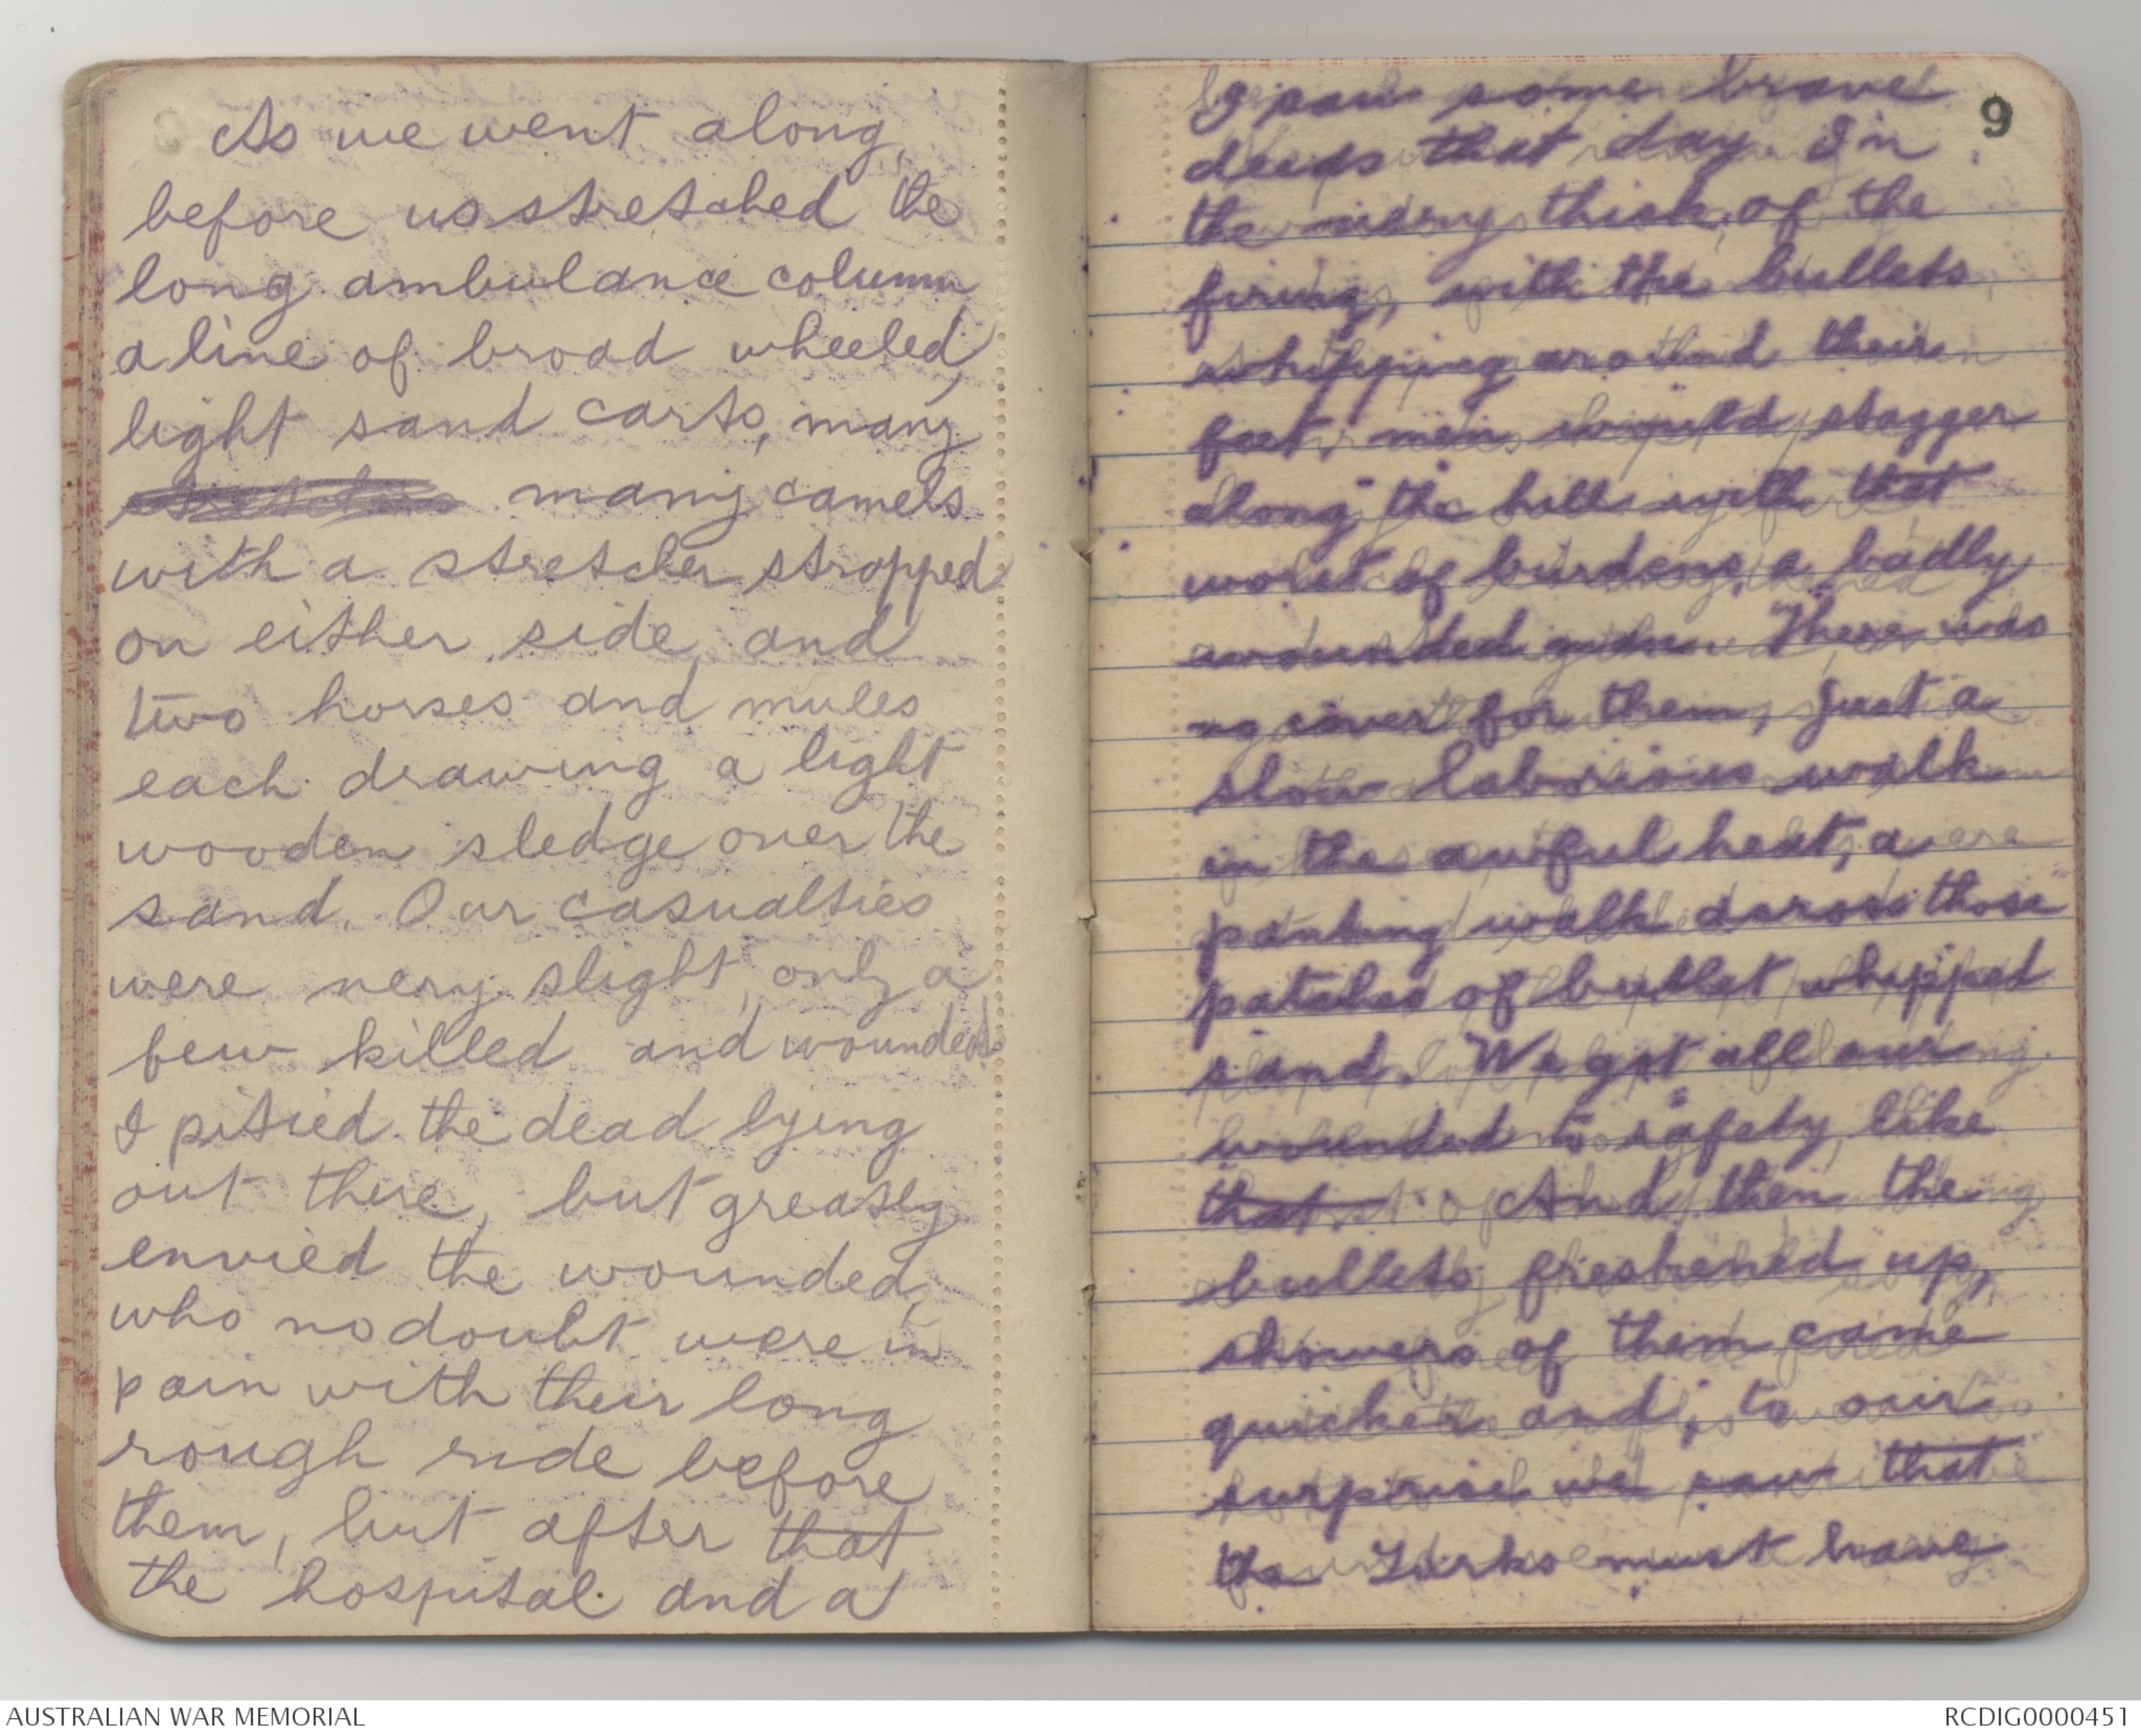 As we went along,
before us stretched the
long ambulance column
a line of broad wheeled,
light sand carts, many
many camels
with a stretcher stropped
on either side, and
two horses and mules
each drawing a light
wooden sledge over the
sand. Our casualties
were very slight, only a
few killed and wounded.
I pitied the dead lying
out there, but greatly
envied the wounded,
who no doubt were in
pain with their long
rough ride before
them, but after that
the hospital and a
9
I saw some brave
deeds that day. In
the very thick of the
firing, with the bullets
whipping around their
feet, men would stagger
along the hill with that
worst of burdens, a badly
wounded man. There was
no cover for them, just a
slow laborious walk
in the awful heat, a
panting walk across those
patches of bullet whipped
sand. We got all our
wounded to safety, like
that. And then the
bullets freshened up,
showers of them came
quicker and, to our
surprise we saw that
the Turks must have
AUSTRALIAN WAR MEMORIAL
RCDIG0000451